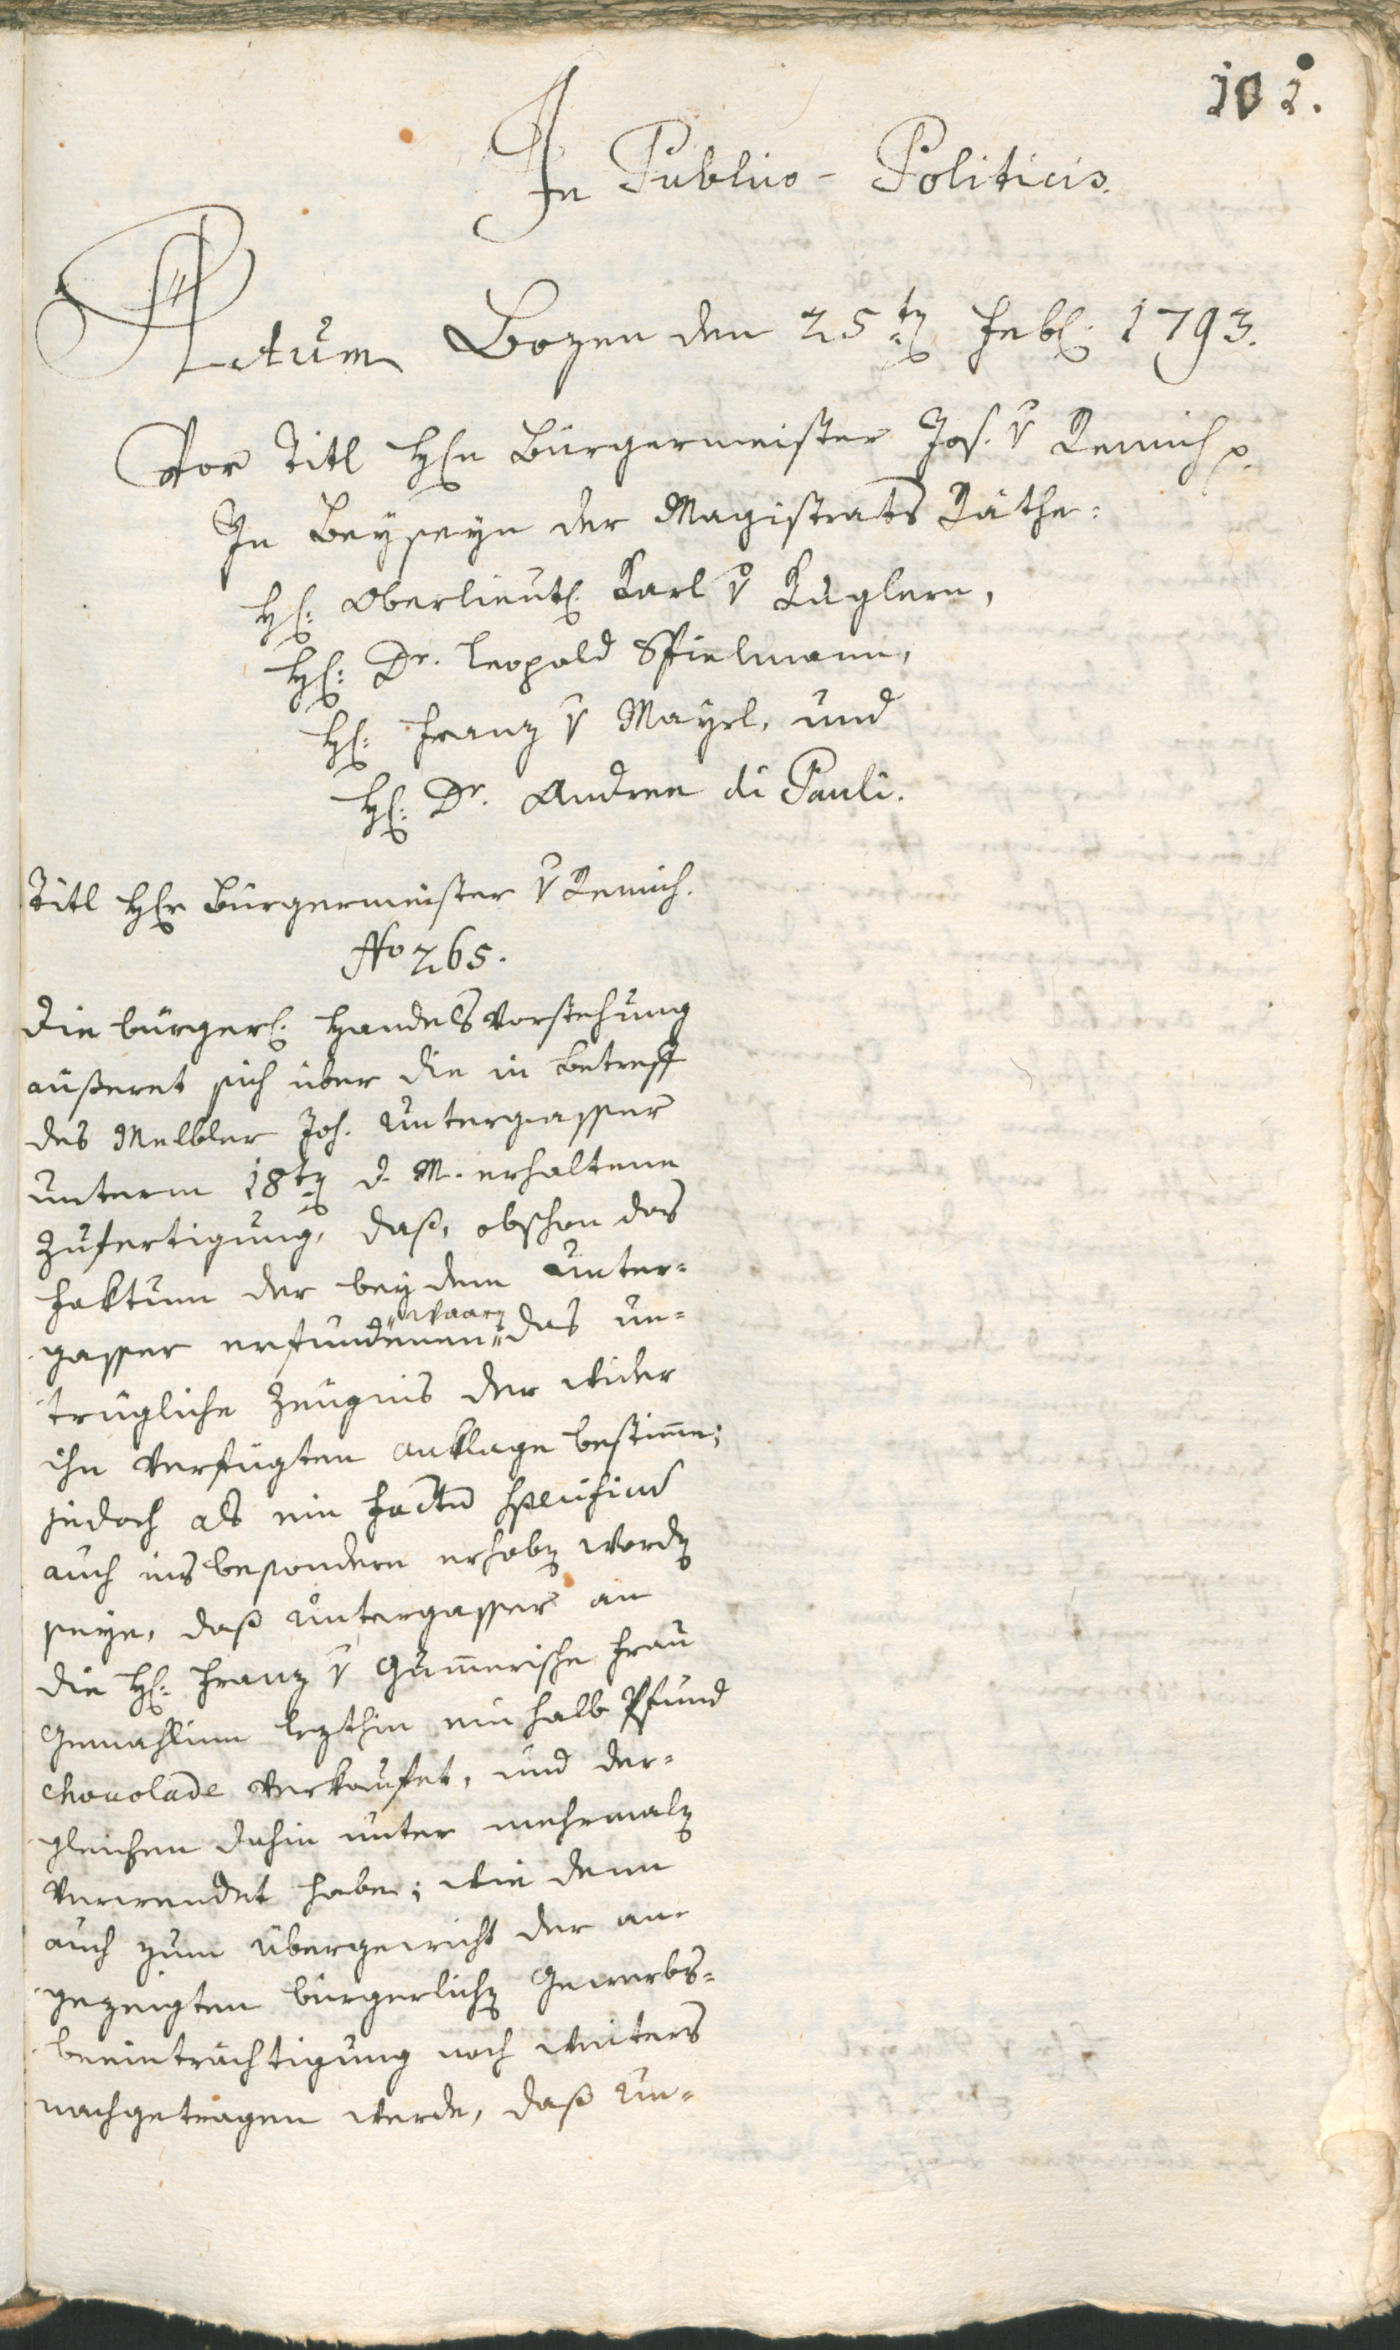 101.
In Publico-Politicis.
Actum Bozen den 25ten Febr: 1793.
Vor Titl Hrn Bürgermeister Jos. v Remich p.
In Beyseyn der Magistrats Räthe:
Hr: Oberlieut: Karl v Kuglern,
Hr: Dr. Leopold Spielmann,
Hr: Franz v Mayrl, und
Hr: Dr. Andree di Pauli.
Titl Hr Bürgermeister v Remich.
No 265.
Die bürgerl: Handels Vorstehung
äußeret sich über die in Betreff
des Melbler Joh. Untergasser
unterm 18ten d. M. erhaltene
Zufertigung, daß, obschon das
Faktum der bey dem Unter-
gasser erfundenen Waaren das un-
trügliche Zeugnis der wider
ihn verfügten Anklage bestimme;
jedoch als ein Factum specificum
auch insbesondere erhoben worden
seye, daß Untergasser an
die Hr: Franz v Gummerische Frau
Gemahlinn lezthin ein halb Pfund
Chocolade verkaufet, und der-
gleichen dahin unter mehrmalen
verwendet habe; wie denn
auch zum Übergewicht der an-
gezeigten bürgerlichen Gewerbs-
beeinträchtigung noch weiters
nachgetragen werde, daß Un-